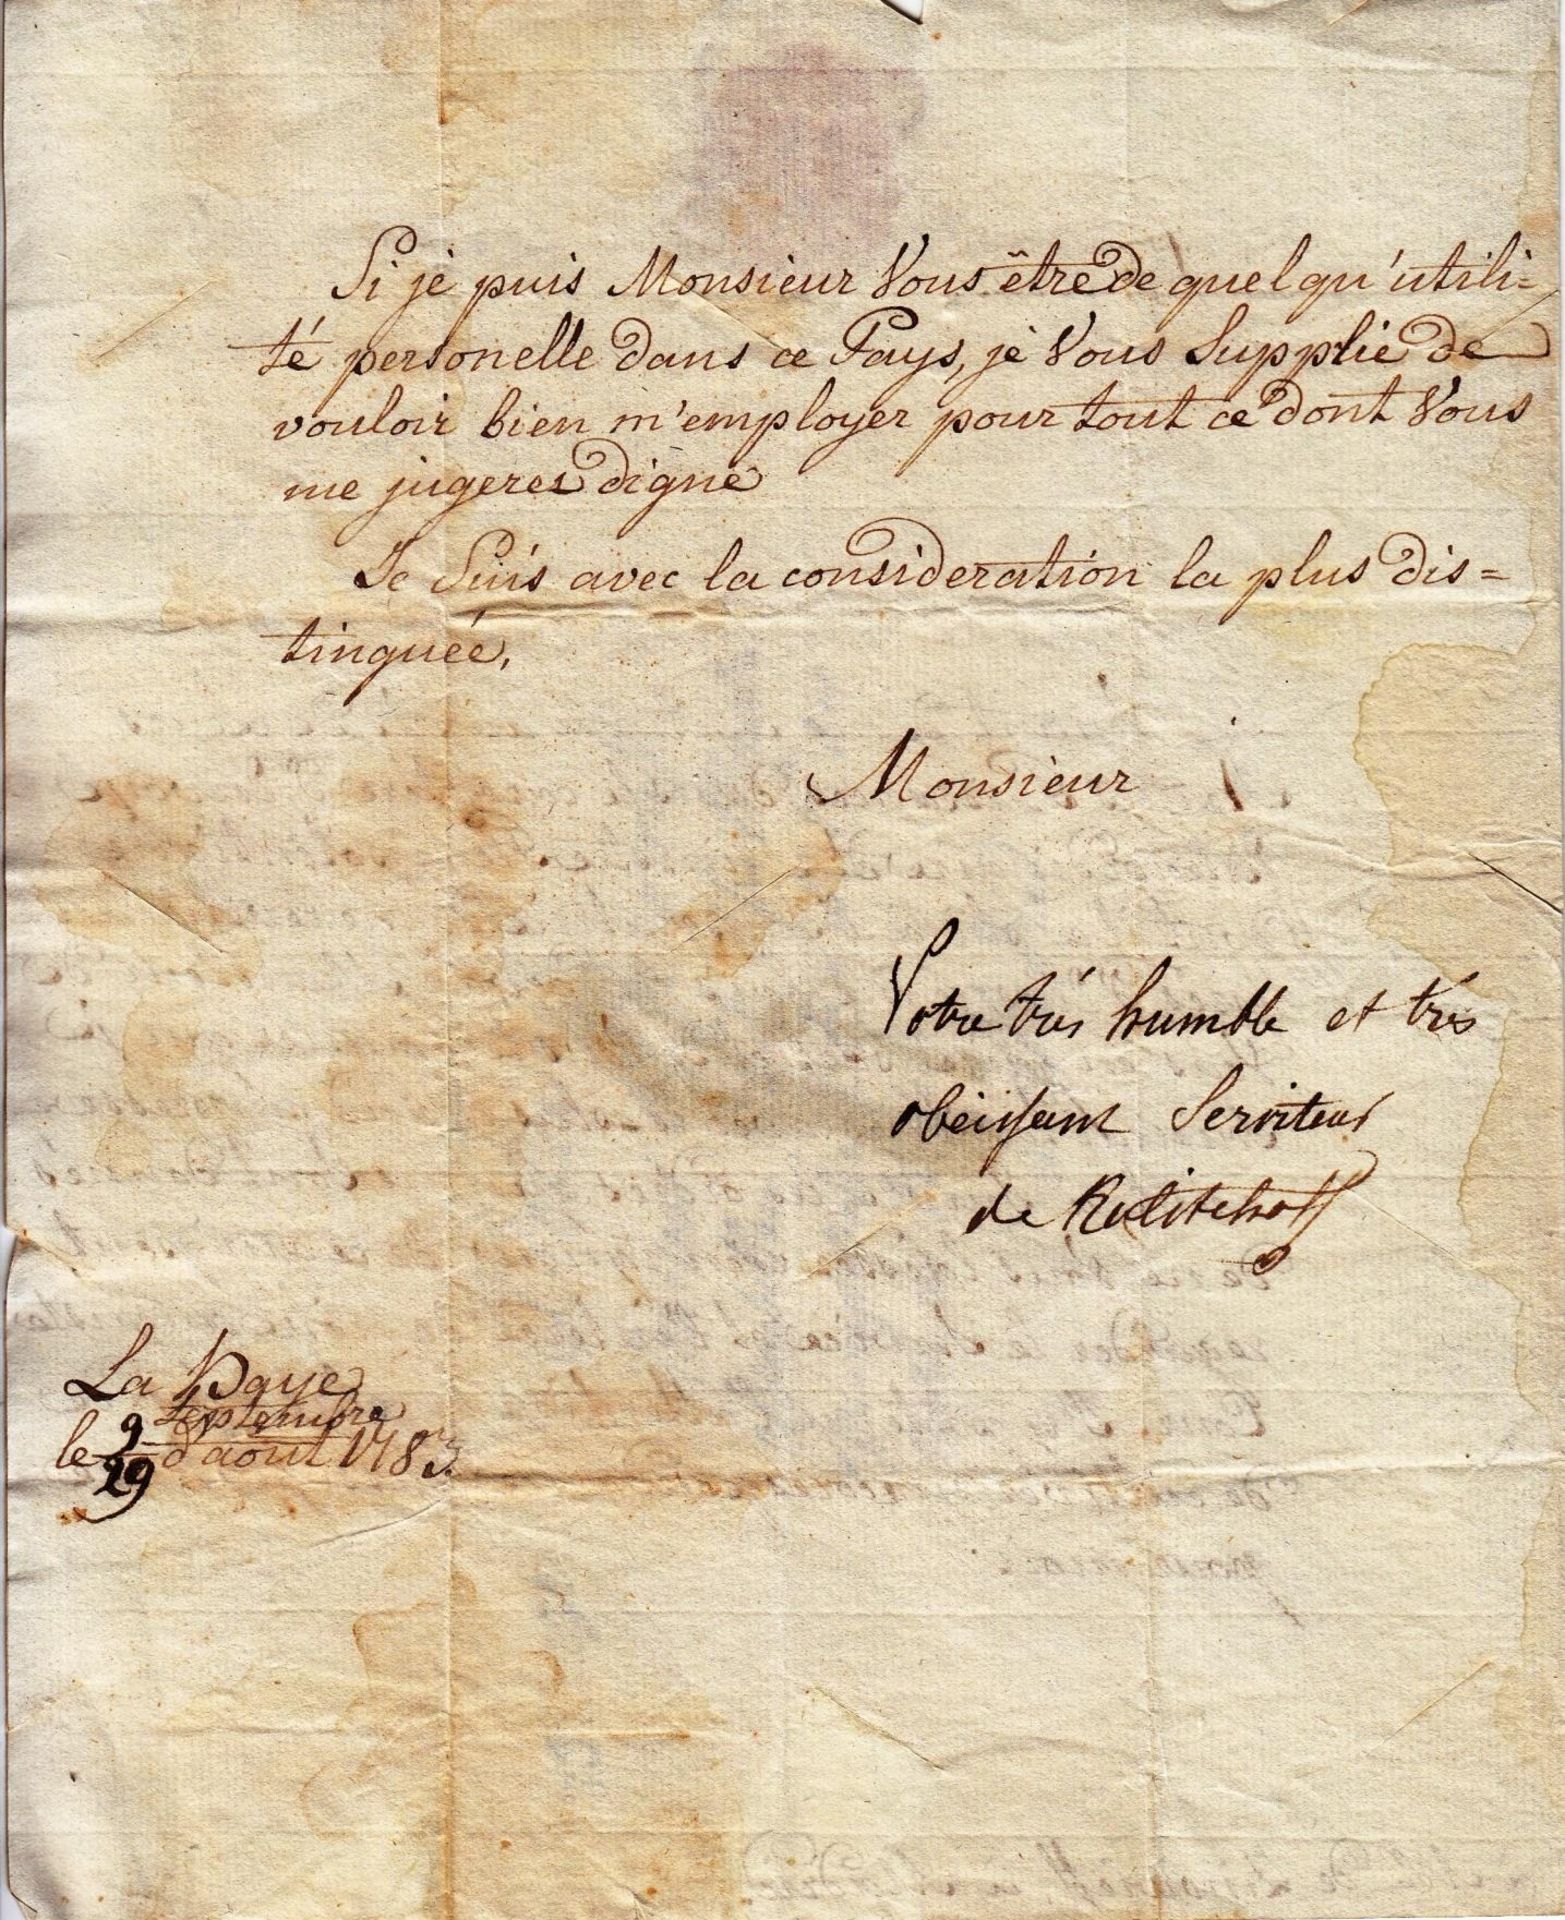 Si jè puis Monsieur Vous être de quelqu'utili=
té personelle dans ce Pays, jè Vous Supplie de
vouloir bien m'employer pour tout ce dont Vous
me jugeres digne
Je Suis avec la consideration la plus dis=
tinguée,
Monsieur
Votre trés humble et trés
obèissant Serviteur
de
La Haye
Septembre
le 9
29 d'aout 1783.